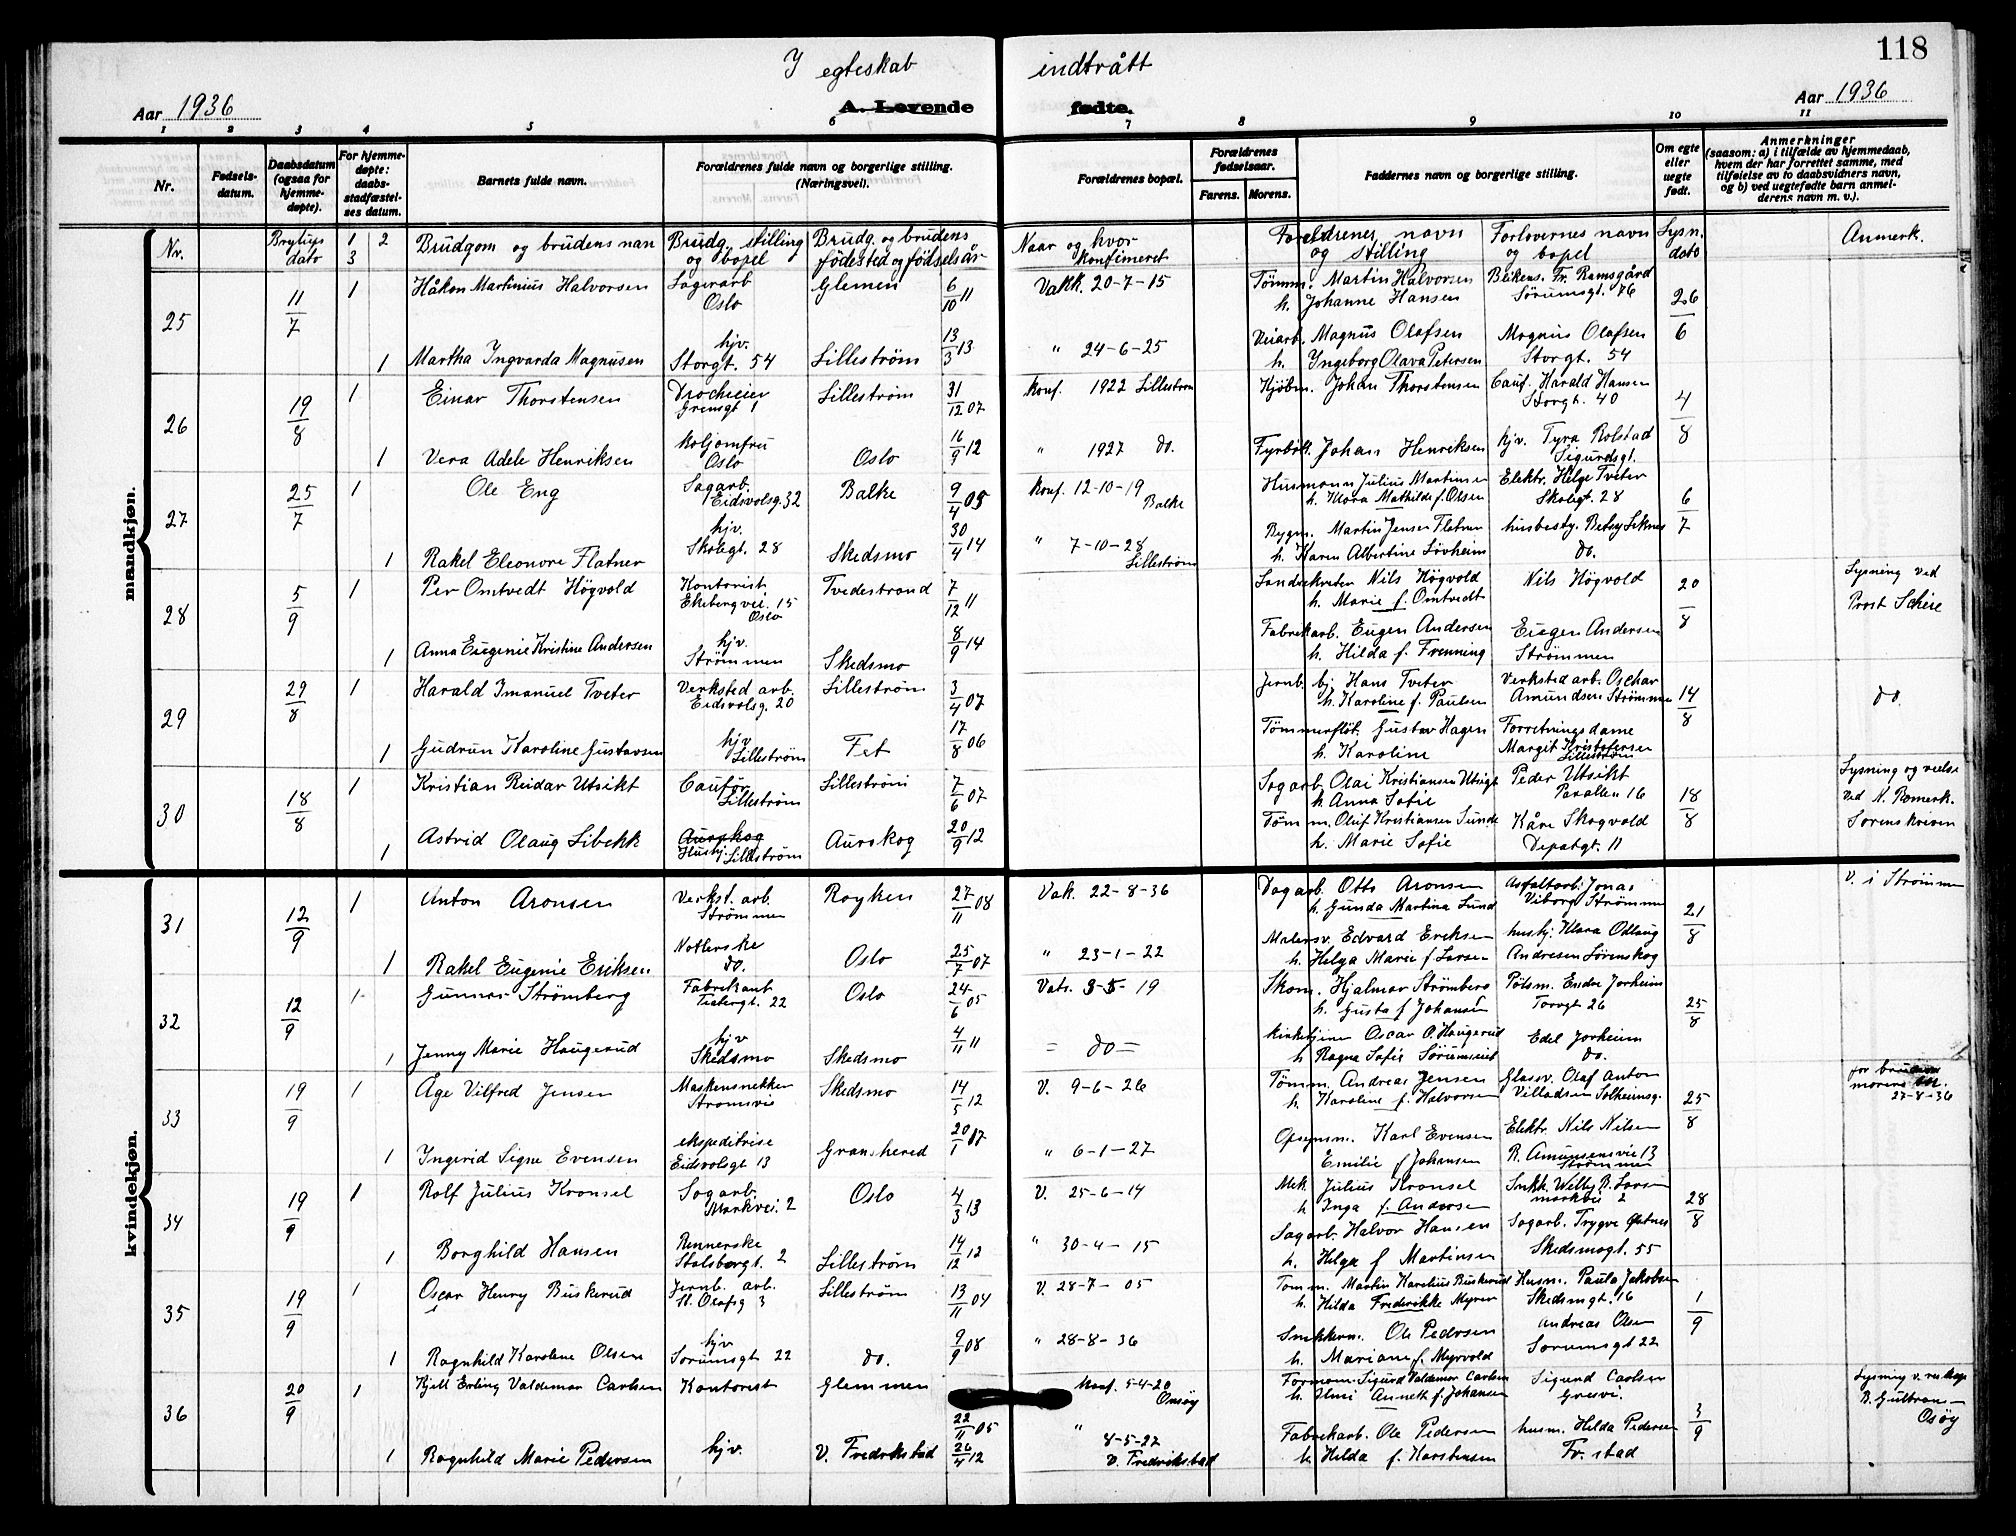 118
I egteskab indtrått
Aar 1936 A. Levende fødte. Aar 1936
1 2 3 4 5 6 7 8 9 10 11
Nr. Fødsels-datum. Daabsdatum (ogsaa for hjemme-døpte). For hjemme-døpte: daabs-stadfæstel-ses datum. Barnets fulde navn. Forældrenes fulde navn og borgerlige stilling. (Næringsvei). Forældrenes bopæl. Forældrenes fødselsaar. Farens. Morens. Faddernes navn og borgerlige stilling. Om egte eller uegte født. Anmerkninger (saasom: a) i tilfælde av hjemmedaab, hvem der har forrettet samme, med tilføielse av to daabsvidners navn, og b) ved uegtefødte barn anmel-derens navn m. v.).
Nr. Bryllups dato 1 2 3 Brudgom og brudens navn Brudg. stilling og bopel Brudg. og brudens fødested og fødselsår Naar og hvor konfimeret Foreldrenes navn og stilling Forlovernes navn og bopel Lysn. dato Anmerk.
mandkjøn.
25 11/7 1 Håkon Martinius Halvorsen Sagarb Oslo Glemen 6/10 11 Vakk. 20-7-15 Tømm. Martin Halvorsen h. Johanne Hansen Blikens. Fr. Ramsgård Sørumsgt. 76 26/6
1 Martha Ingvarda Magnusen hjv. Storgt. 54 Lillestrøm 13/3 13 " 24-6-25 Veiarb. Magnus Olafsen h. Ingeborg Olava Petersen Magnus Olafsen Storgt. 54
26 19/8 1 Einar Thorstensen Drocheier Grensgt 1 Lillestrøm 31/12 07 konf. 1922 Lillestrøm Kjøbm. Johan Thorstensen Cauf. Harald Hansen Storgt. 40 4/8
1 Vera Adele Henriksen Oslo Oslo 16/9 12 " 1927 do. Fyrbøt. Johan Henriksen hjv. Tyra Rolstad Sigurdsgt.
27 25/7 1 Ole Eng Sagarb. Eidsvolsg. 32 Balke 9/4 05 konf. 12-10-19 Balke Husmann Julius Martinsen h. Klara Mathilde f. Olsen Elektr. Helge Tveter Skolegt. 28 6/7
1 Rakel Eleonore Flatner hjv. Skolegt. 28 Skedsmo 30/4 14 " 7-10-28 Lillestrøm Bygm. Martin Jensen Flatner h. Karen Albertine Lövheim husbesty. Betsy Seknes do.
28 5/9 1 Per Omtvedt Högvold Kontorist. Ekebergvei. 15 Oslo Tvedestrand 7/12 11 Landsekreter Nils Högvold h. Marie f. Omtvedt Nils Högvold 20/8 Lysning ved Prost Scheie
1 Anna Eugenie Kristine Andersen hjv. Strømmen Skedsmo 8/9 14 Fabrikarb. Eugen Andersen h. Hilda f. Frenning Eugen Andersen Strømmen
29 29/8 1 Harald Imanuel Tveter Verksted arb. Eidsvolsg. 20 Lillestrøm 3/4 07 Jernb. bj. Hans Tveter h. Karoline f. Paulsen Verksted arb. Oschar Amundsen Strømmen 14/8 do.
1 Gudrun Karoline Gustavsen hjv. Lillestrøm Fet 17/8 06 Tømmerfløt. Gustav Hagen h. Karoline Forretningsdame Margit Kristofersen Lillestrøm
30 18/8 1 Kristian Reidar Utsikt Caufør Lillestrøm Lillestrøm 7/6 07 Sagarb. Olai Kristiansen Utsigt h Anna Sofie Peder Utsikt Parallen 16 18/8 Lysning og vielse ved N. Romerk. Sorenskriven
1 Astrid Olaug Libekk Aurskog Hushj. Lillestrøm Aurskog 20/9 12 Tømm. Oluf Kristiansen Lunde h. Marie Sofie Kåre Skogvold Depotgt. 11
kvindekjøn.
31 12/9 1 Anton Aronsen Verkst. arb. Strømmen Røyken 27/11 08 Vak. 22-8-36 Dagarb. Otto Aronsen h. Gunda Martina Lund Asfaltarb. Jonas Viborg Strømmen 21/8 V. i Strømmen
1 Rakel Eugenie Eriksen do. Oslo 25/7 07 " 23-1-22 Malersv. Edvard Eriksen h. Helga Marie f Larsen hushj. Klara Odlaug Andresen Lørenskog
32 12/9 1 Gunnar Strømberg Fabrikant 22 Oslo 24/6 05 Vats. 3-5-19 Skom. Hjalmar Strømberg h. Gusta f Johansen Pølsm. Endre Jorheim Torvgt 26 25/8
1 Jenny Marie Haugerud hjv Skedsmo Skedsmo 4/11 11 = do = Kirketjener Oscar O. Haugerud h Ragna Sofie Edel Jorheim do.
33 19/9 1 Åge Vilfred Jensen Maskensnekker Strømsvei Skedsmo 14/5 12 V. 9-6-26 Tømm. Andreas Jensen h. Karoline f. Halvorsen Glasv. Olaf Anton Villadsen Solheimsg. 25/8 for 27-8-36
1 Ingerid Signe Evensen ekspeditrise Eidsvolsgt 13 Gransherred 20/1 17 " 6-1-27 Opsynsm. Karl Evensen Emilie f Johansen Elektr. Nils Nilsen R. Amundsensvei 13 Strømmen
34 19/9 1 Rolf Julius Kronsel Sagarb. Markvei. 2 Oslo 4/3 13 V. 25-6-14 Mek. Julius Kronsel h Inga f. Andersen Snkk. Welby B. Larsen markvei 2 28/8
1 Borghild Hansen Stalsbergt. 2 Lillestrøm 14/12 12 " 30-4-15 Sagarb. Halvor Hansen h. Helga f Martinsen Sagarb. Trygve Skedsmogt. 55
35 19/9 1 Oscar Henry Buskerud Jernb. arb. St. Olafsg 3 Lillestrøm 13/11 04 V. 28-7-05 Tømm. Martin Karelius Buskerud h. Hilda Frederikke Myrer Husm. Paula Jakobsen Skedsmgt. 16 1/9
1 Ragnhild Karoline Olsen hjv Sørumsgt 22 do. 9/9 08 " 28-8-36 Snekkerm. Ole Pedersen h. Mariane f. Myrvold Andreas Olsen Sørumsgt 22
36 20/9 1 Kjell Erling Valdemar Carlsen Kontorist Glemmen 22/11 05 Konf. 5-4-20 Onsøy Formann Sigurd Valdemar Carlsen h. Anneth f. Johansen Sigurd Carlsen 3/9 Lysning v. B. Gulbrans- Osøy
1 Ragnhild Marie Pedersen hjv. V. Fredrikstad 26/4 12 " 8-5-27 V. Fredrikstad Fabrikarb. Ole Pedersen h. Hilda f. Karstensen husm. Hilda Pedersen Fr. stad